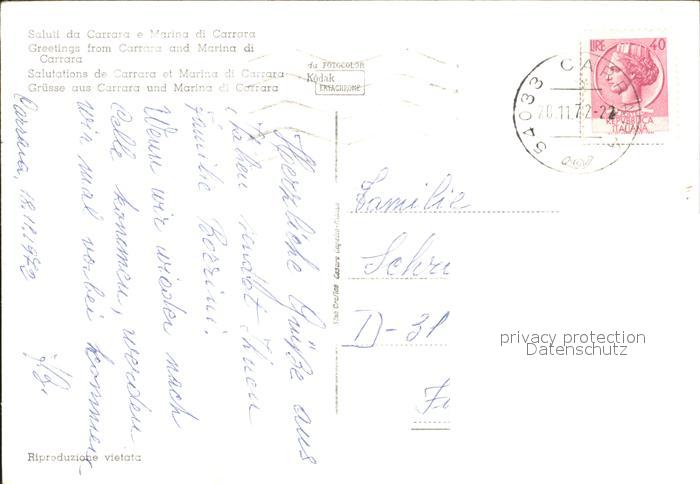 Saluti da Carrara e Marina di Carrara
Greetings from Carrara and Marina di
Carrara
Salutations de Carrara et Marina di Carrara
Grüsse aus Carrara und Marina di Carrara
da FOTOCOLOR
Kodak
EKTACHROME
LIRE 40
REPUBBLICA
ITALIANA
54033 CARR
20.11.72-22
Carrara, 18.11.1972
Herzliche Grüße aus
Italien sendet Ihnen
Familie Borrini.
Wenn wir wieder nach
Celle kommen, werden
wir mal vorbei kommen
Familie
Schr
D-31
privacy protection
Datenschutz
Riproduzione vietata